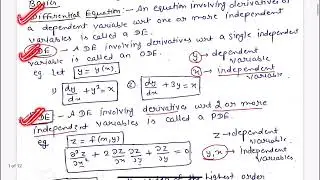 Basics
Differential Equation:- An equation involving derivatives of
a dependent variable wrt one or more independent
variables is called a DE.
ODE - A DE involving derivatives wrt a single independent
variable is called an ODE.
eg. Let y = y(x)
y → dependent variable
x → independent variable.
i) dy/dx + y² = x
ii) dy/dx + 2y = x
PDE - A DE involving derivatives wrt 2 or more
independent variables is called a PDE.
eg z = f(x,y)
z → dependent variable
∂²z/∂x² + 2 ∂z/∂x ∂z/∂y + ∂z/∂y = 0.
y, x → independent variables
1 of 12
of the highest order